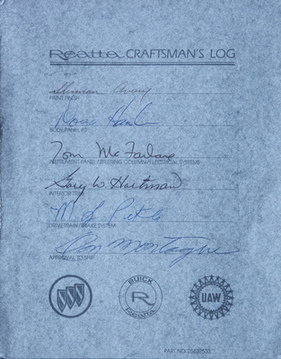 Reatta CRAFTSMAN'S LOG
PAINT FINISH
BODY/PANEL FIT
Tom McFarlane
INSTRUMENT PANEL/STEERING COLUMN/ELECTRICAL SYSTEMS
Gary W. Hartman
INTERIOR TRIM
DRIVETRAIN/BRAKE SYSTEM
Don Montague
APPROVAL TO SHIP
BUICK
R
UAW
PART NO.